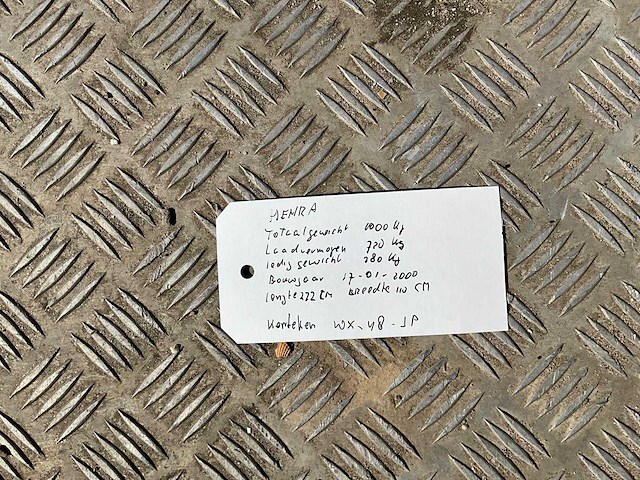 HEMRA
Totaalgewicht 1000 Kg
Laadvermogen 720 Kg
ledig gewicht 280 Kg
Bouwjaar 17-01-2000
lengte 222 CM Breedte 110 CM
Kenteken WX-48-JP